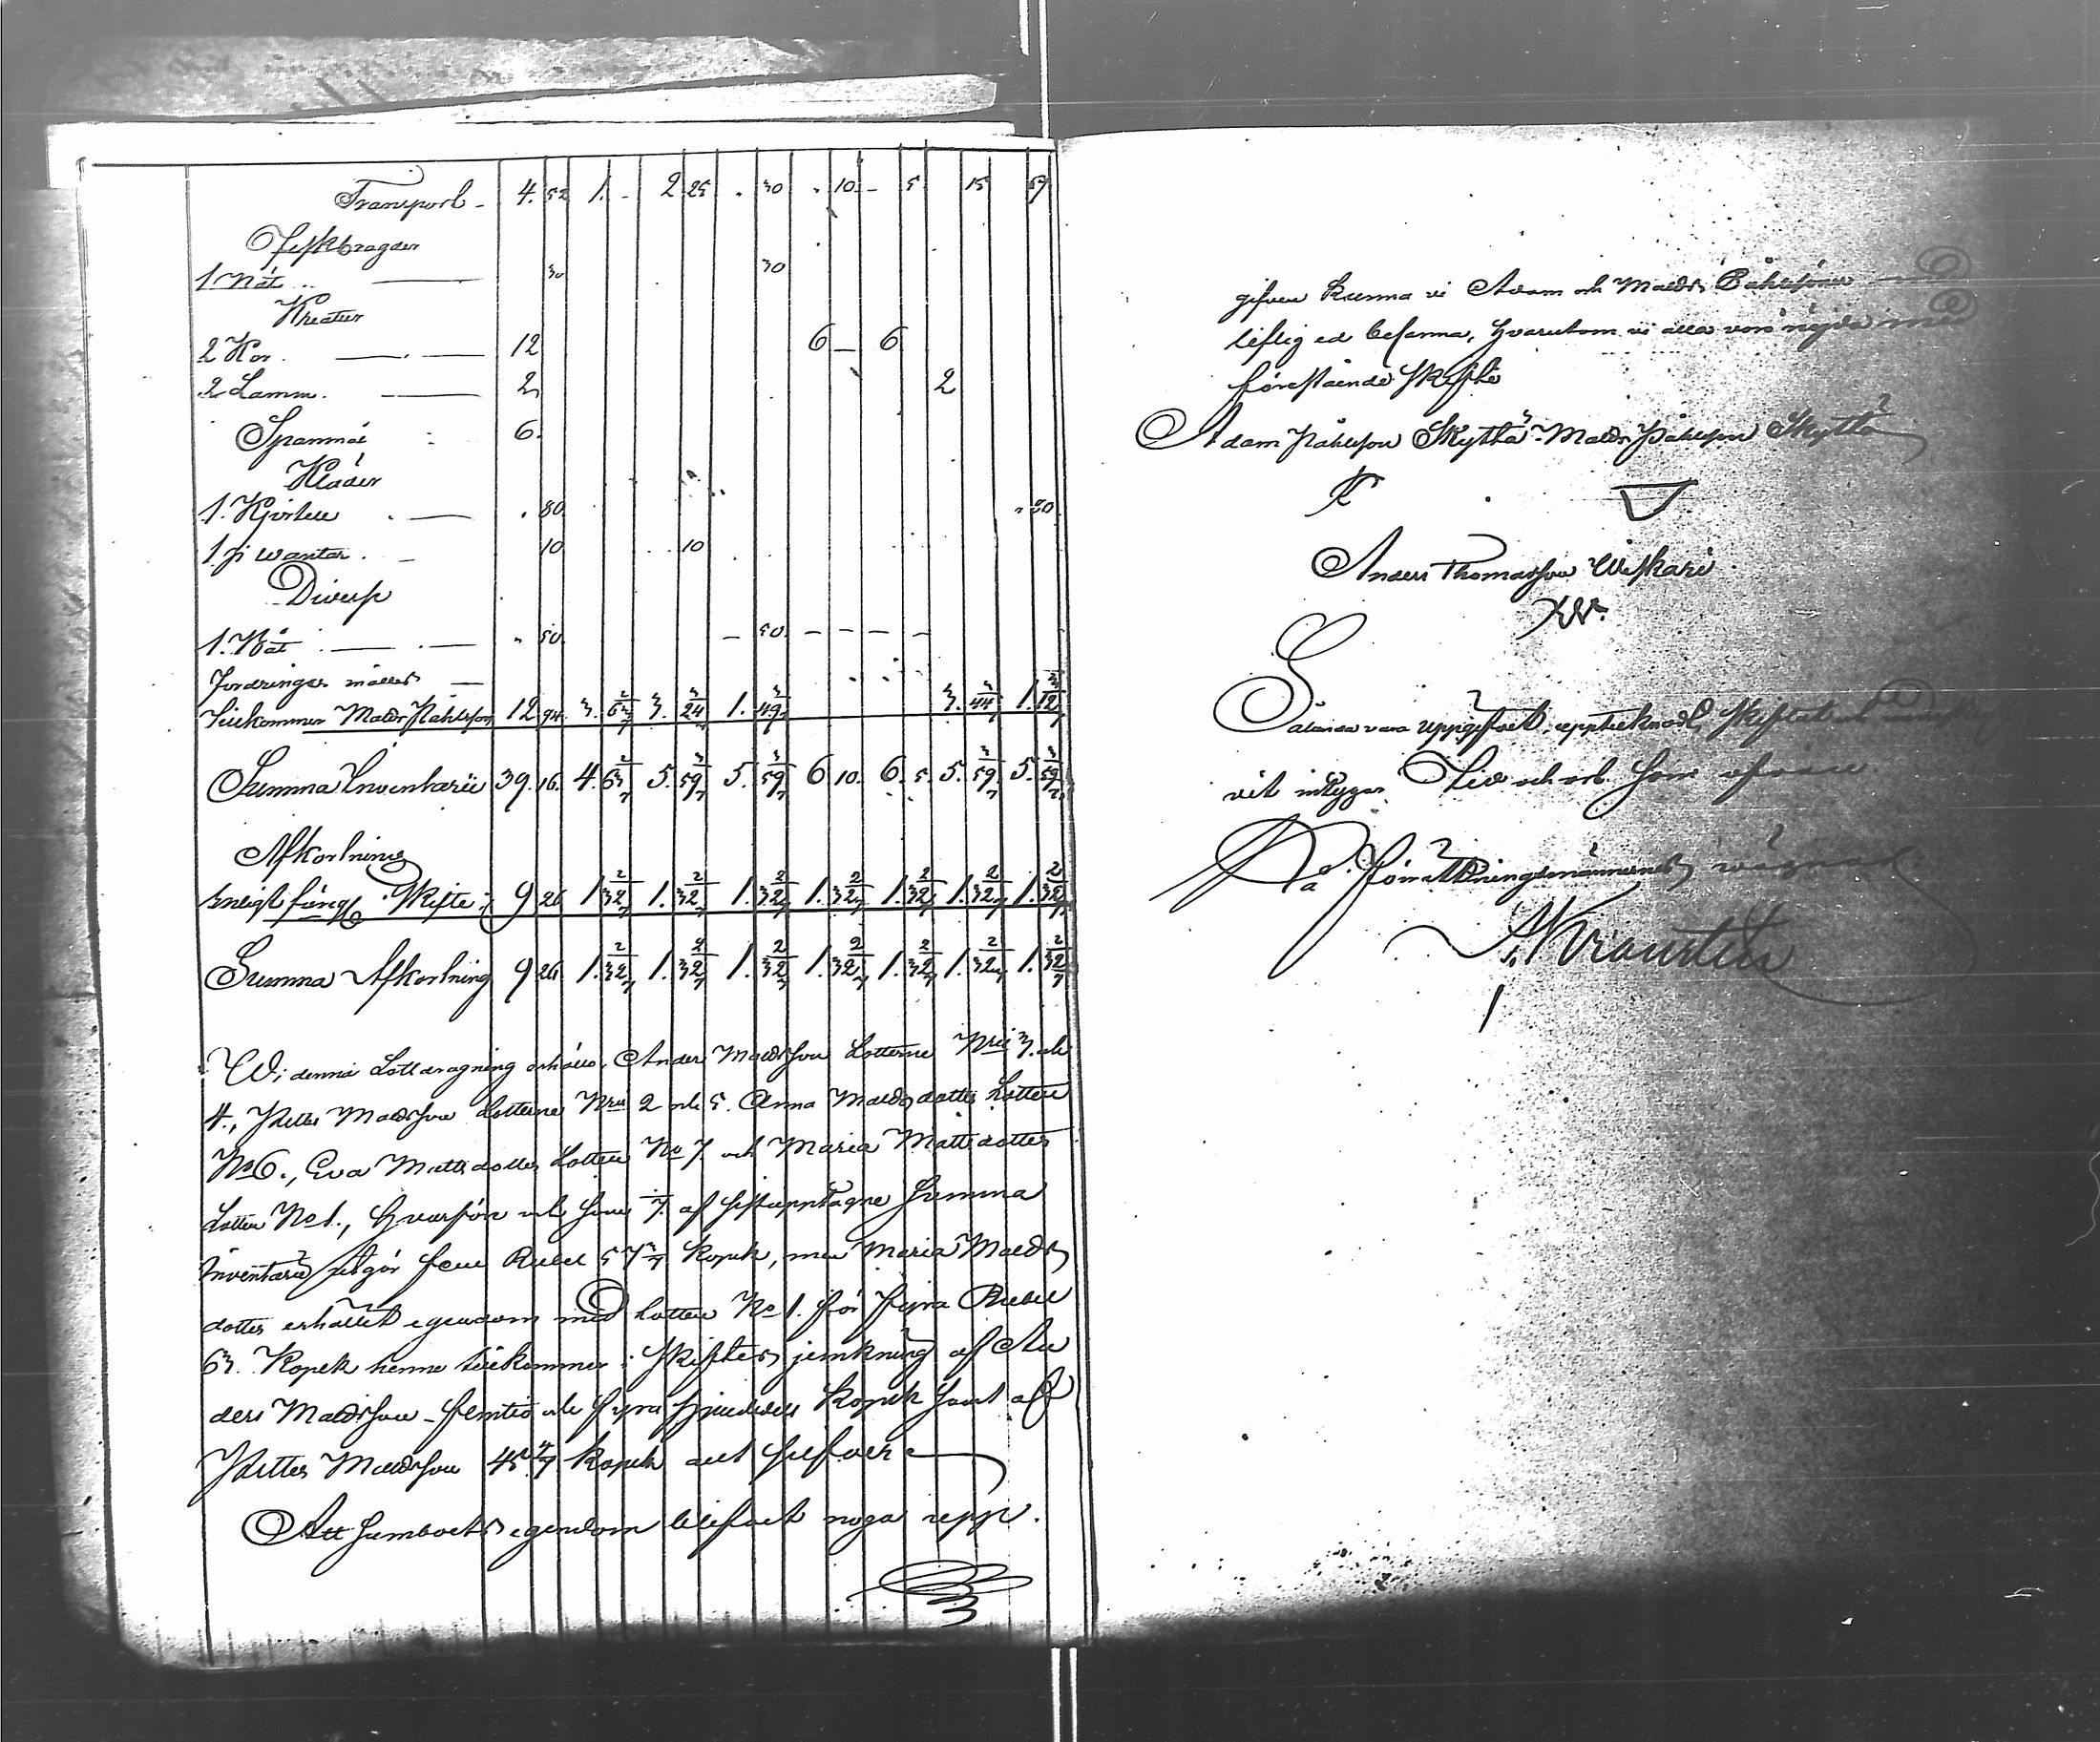 Transport 4. 52 1. - 2 25 . 30 . 10 - 5 15 57
Fiskbragder
1 Nät 30 30
Kreatur
2 Kor. 12 6 6
2 Lamm. 2 2
Spanmål 6.
Kläder
1. Kjortell . 80 . 80
1. p wantar. 10 10
Diverse
1. Båt 50 50
Fordringar
Tillkommer Matts Påhlsson 12 94
Summa Inventarii 39. 16. 4. 63 2/7 5. 59 3/7 5. 59 3/7 6 10. 6. 5. 5. 59 3/7 5. 59 3/7
Afkortning
enligt Skifte 9 26 1. 32 2/7 1. 32 2/7 1. 32 2/7 1. 32 2/7 1. 32 2/7 1. 32 2/7 1. 32 2/7
Summa Afkortning 9 26 1. 32 2/7 1. 32 2/7 1. 32 2/7 1. 32 2/7 1. 32 2/7 1. 32 2/7 1. 32 2/7
Wi denna Lottdragning erhöllo Anders Mattsson Lotterne Nris 3. och
4., Petter Mattsson Lotterne Nris 2 och 5. Anna Mattsdotter Lotten
No 6., Eva Mattsdotter Lotten No 7. och Maria Mattsdotter
Lotten No 1., hvarför och som 1/7 af sistupptagne Summa
Inventarii utgör fem Rubel 59 3/7 Kopek, men Maria Matts
dotter erhållit egendom med Lotten No 1. för fyra Rubel
63. Kopek henne tillkommer i Skiftes jemkning af An
ders Mattsson femtio och fyra Kopek samt af
Petter Mattsson 45 Kopek
Att Sterbboets egendom blifvit noga upp.
gifven kunna vi Adam och Matts Påhlssöner
liflig ed besanna, hvarutom vi alla voro nöjda med
förestående Skifte
Adam Påhlsson Skyttä Matts Påhlsson Skyttä
Anders Thomasson Wiskari
Sålunda vara uppgifvet, upptecknadt, Skiftat och
vit intygar Tid och ort som ofvan
På Förrättningsmännens wägnar